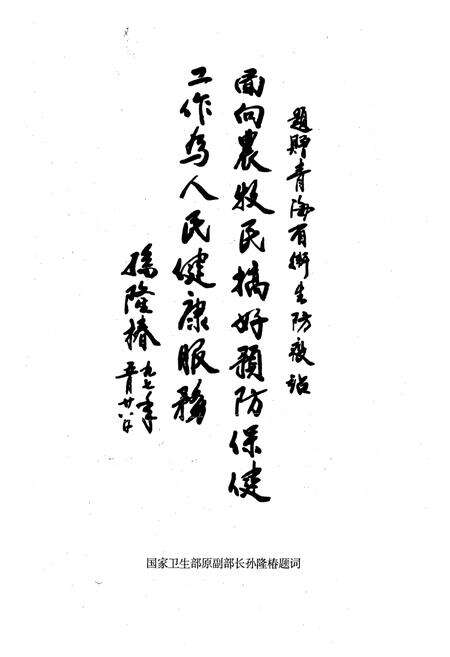 题赠青海省卫生防疫站
面向农牧民搞好预防保健
工作为人民健康服务
孙隆椿
九七年
五月廿六日
国家卫生部原副部长孙隆椿题词